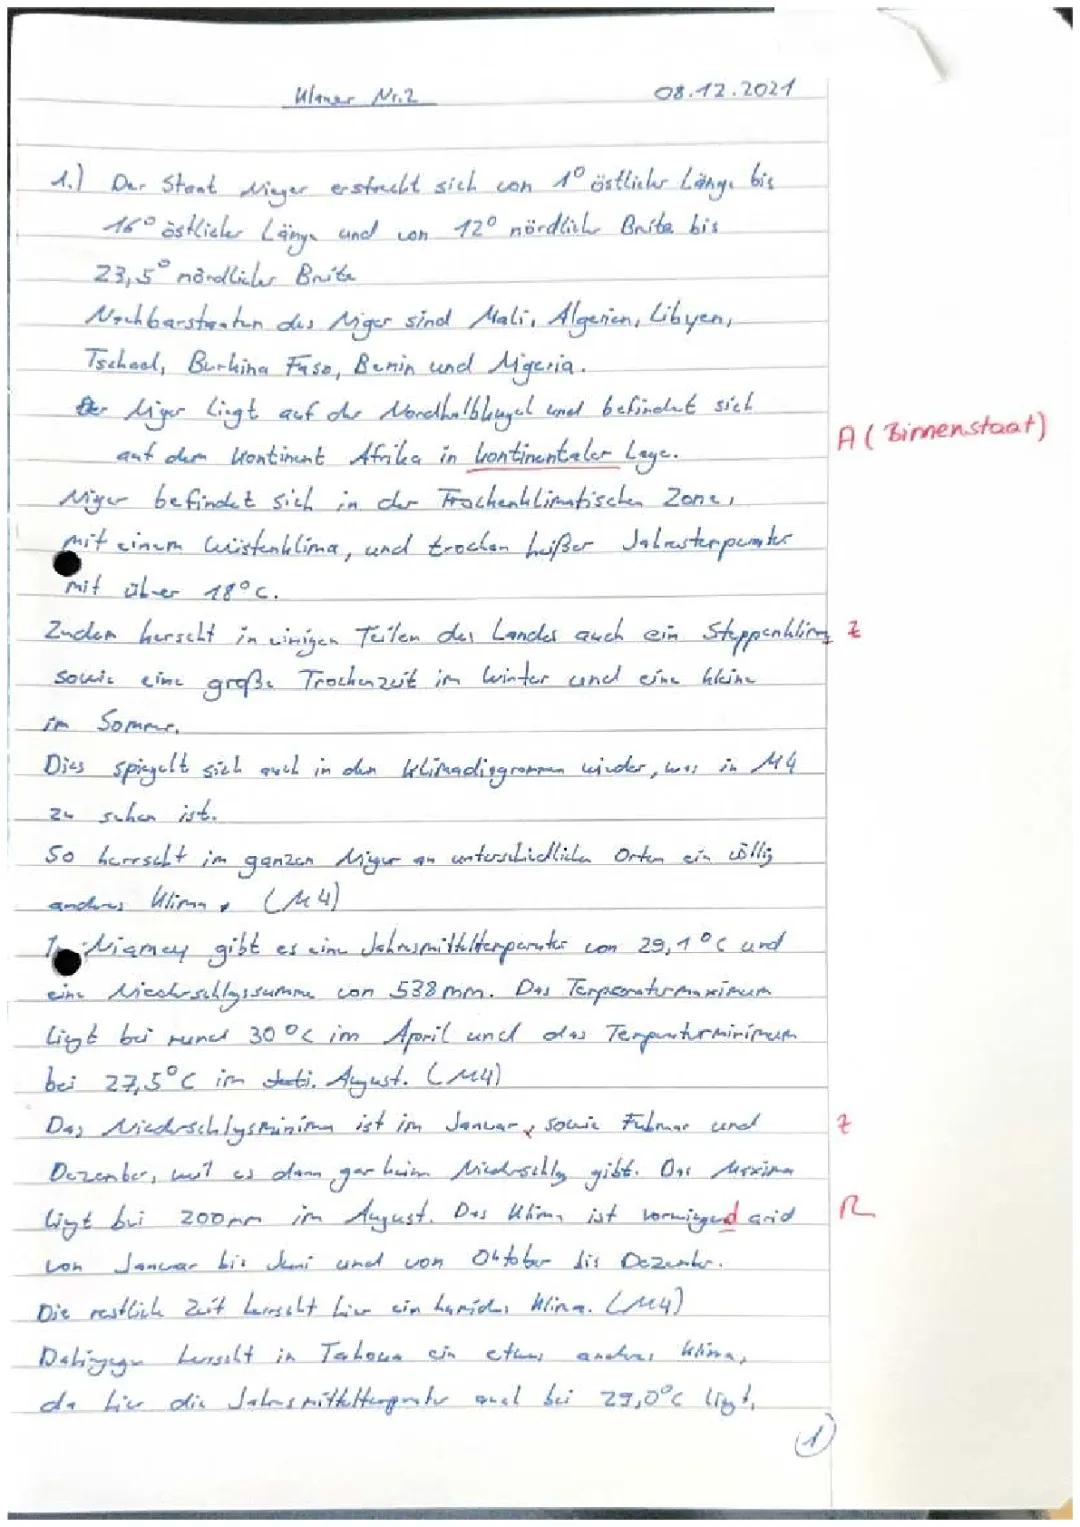 Klausur Nr.2 08.12.2021
1.) Der Staat Niger erstreckt sich von 1° östlicher Länge bis
16° östlicher Länge und von 12° nördlicher Breite bis
23,5° nördlicher Breite
Nachbarstaaten des Niger sind Mali, Algerien, Libyen,
Tschad, Burkina Faso, Benin und Nigeria.
Der Niger liegt auf der Nordhalbkugel und befindet sich
auf dem Kontinent Afrika in kontinentaler Lage. A (Binnenstaat)
Niger befindet sich in der Trockenklimatischen Zone,
mit einem Wüstenklima, und trocken heißer Jahrestemperatur
mit über 18°C.
Zudem herscht in einigen Teilen des Landes auch ein Steppenklima Z
sowie eine große Trockenzeit im Winter und eine kleine
im Sommer.
Dies spiegelt sich auch in den Klimadiagrammen wieder, was in M4
zu sehen ist.
So herrscht im ganzen Niger an unterschiedlichen Orten ein völlig
anderes Klima. (M4)
In Niamey gibt es eine Jahresmitteltemperatur von 29,1°C und
eine Niederschlagssumme von 538 mm. Das Temperaturmaximum
liegt bei rund 30°C im April und das Temperaturminimum
bei 27,5°C im August. (M4)
Das Niederschlagsminima ist im Januar, sowie Februar und Z
Dezember, weil es dann gar keinen Niederschlag gibt. Das Maxima
liegt bei 200mm im August. Das Klima ist vorwiegend arid R
von Januar bis Juni und von Oktober bis Dezember.
Die restliche Zeit herrscht hier ein humides Klima. (M4)
Dahingegen herrscht in Tahoua ein etwas anderes Klima,
da hier die Jahresmitteltemperatur auch bei 29,0°C liegt,
1